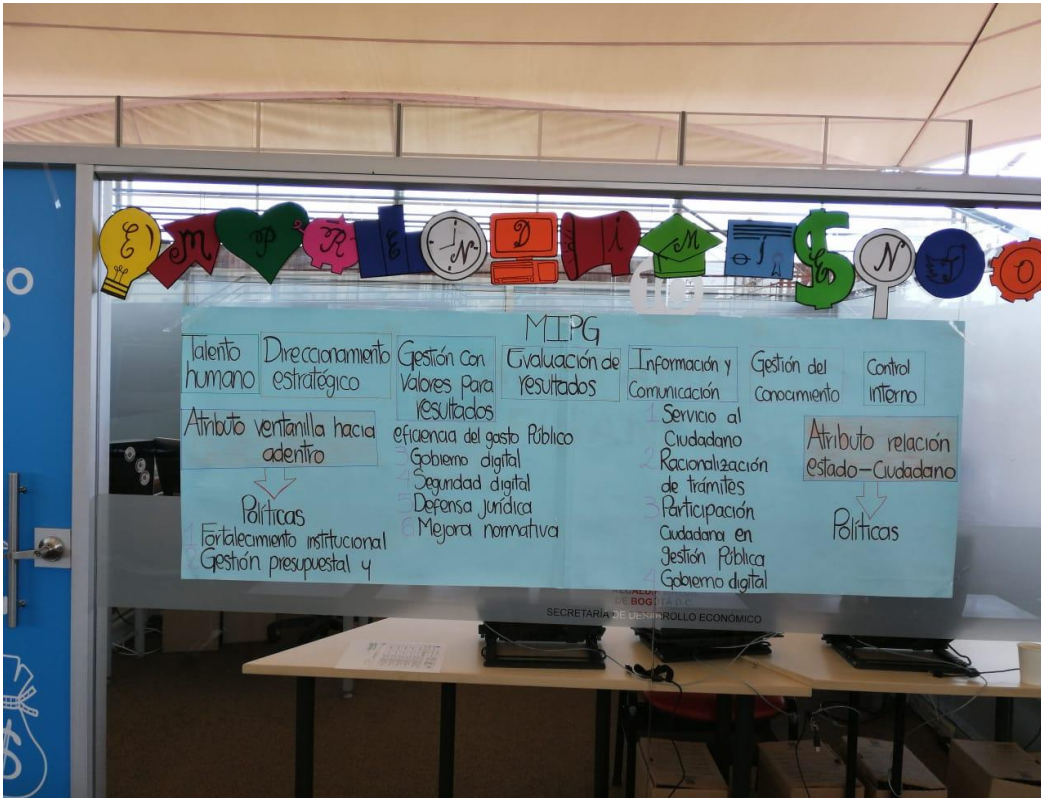 EMPRENDIMIENTO
MIPG
Talento
humano
Direccionamiento
estratégico
Gestión con
Valores Para
resultados
Evaluación de
resultados
Información y
Comunicación
Gestión del
Conocimiento
Control
interno
Atributo ventanilla hacia
adentro
Políticas
1 Fortalecimiento institucional
2 Gestión presupuestal y
eficiencia del gasto Público
3 Gobierno digital
4 Seguridad digital
5 Defensa jurídica
6 Mejora normativa
1 Servicio al
Ciudadano
2 Racionalización
de trámites
3 Participación
Ciudadana en
gestión Pública
4 Gobierno digital
Atributo relación
estado-Ciudadano
Políticas
DE BOGOTÁ D.C.
SECRETARÍA DE DESARROLLO ECONÓMICO